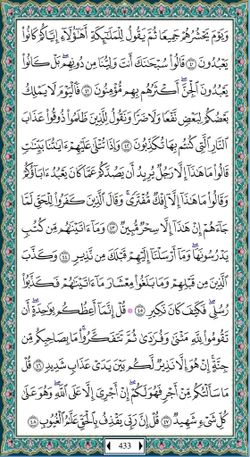 وَيَوْمَ يَحْشُرُهُمْ جَمِيعًا ثُمَّ يَقُولُ لِلْمَلَٰٓئِكَةِ أَهَٰٓؤُلَآءِ إِيَّاكُمْ كَانُوا۟
يَعْبُدُونَ ۝٤٠ قَالُوا۟ سُبْحَٰنَكَ أَنتَ وَلِيُّنَا مِن دُونِهِم ۖ بَلْ كَانُوا۟
يَعْبُدُونَ ٱلْجِنَّ ۖ أَكْثَرُهُم بِهِم مُّؤْمِنُونَ ۝٤١ فَٱلْيَوْمَ لَا يَمْلِكُ
بَعْضُكُمْ لِبَعْضٍ نَّفْعًا وَلَا ضَرًّا وَنَقُولُ لِلَّذِينَ ظَلَمُوا۟ ذُوقُوا۟ عَذَابَ
ٱلنَّارِ ٱلَّتِى كُنتُم بِهَا تُكَذِّبُونَ ۝٤٢ وَإِذَا تُتْلَىٰ عَلَيْهِمْ ءَايَٰتُنَا بَيِّنَٰتٍ
قَالُوا۟ مَا هَٰذَآ إِلَّا رَجُلٌ يُرِيدُ أَن يَصُدَّكُمْ عَمَّا كَانَ يَعْبُدُ ءَابَآؤُكُمْ
وَقَالُوا۟ مَا هَٰذَآ إِلَّآ إِفْكٌ مُّفْتَرًى ۚ وَقَالَ ٱلَّذِينَ كَفَرُوا۟ لِلْحَقِّ لَمَّا
جَآءَهُمْ إِنْ هَٰذَآ إِلَّا سِحْرٌ مُّبِينٌ ۝٤٣ وَمَآ ءَاتَيْنَٰهُم مِّن كُتُبٍ
يَدْرُسُونَهَا ۖ وَمَآ أَرْسَلْنَآ إِلَيْهِمْ قَبْلَكَ مِن نَّذِيرٍ ۝٤٤ وَكَذَّبَ
ٱلَّذِينَ مِن قَبْلِهِمْ وَمَا بَلَغُوا۟ مِعْشَارَ مَآ ءَاتَيْنَٰهُمْ فَكَذَّبُوا۟
رُسُلِى ۖ فَكَيْفَ كَانَ نَكِيرِ ۝٤٥ ۞ قُلْ إِنَّمَآ أَعِظُكُم بِوَٰحِدَةٍ ۖ أَن
تَقُومُوا۟ لِلَّهِ مَثْنَىٰ وَفُرَٰدَىٰ ثُمَّ تَتَفَكَّرُوا۟ ۚ مَا بِصَاحِبِكُم مِّن
جِنَّةٍ ۚ إِنْ هُوَ إِلَّا نَذِيرٌ لَّكُم بَيْنَ يَدَىْ عَذَابٍ شَدِيدٍ ۝٤٦ قُلْ
مَا سَأَلْتُكُم مِّنْ أَجْرٍ فَهُوَ لَكُمْ ۖ إِنْ أَجْرِىَ إِلَّا عَلَى ٱللَّهِ ۖ وَهُوَ عَلَىٰ
كُلِّ شَىْءٍ شَهِيدٌ ۝٤٧ قُلْ إِنَّ رَبِّى يَقْذِفُ بِٱلْحَقِّ عَلَّٰمُ ٱلْغُيُوبِ ۝٤٨
433